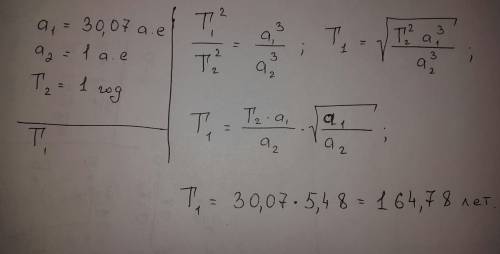 a₁ = 30,07 а.е
a₂ = 1 а.е
T₂ = 1 год
T₁
T₁²/T₂² = a₁³/a₂³ ; T₁ = √(T₂² a₁³/a₂³) ;
T₁ = T₂ · a₁/a₂ · √(a₁/a₂) ;
T₁ = 30,07 · 5,48 = 164,78 лет.